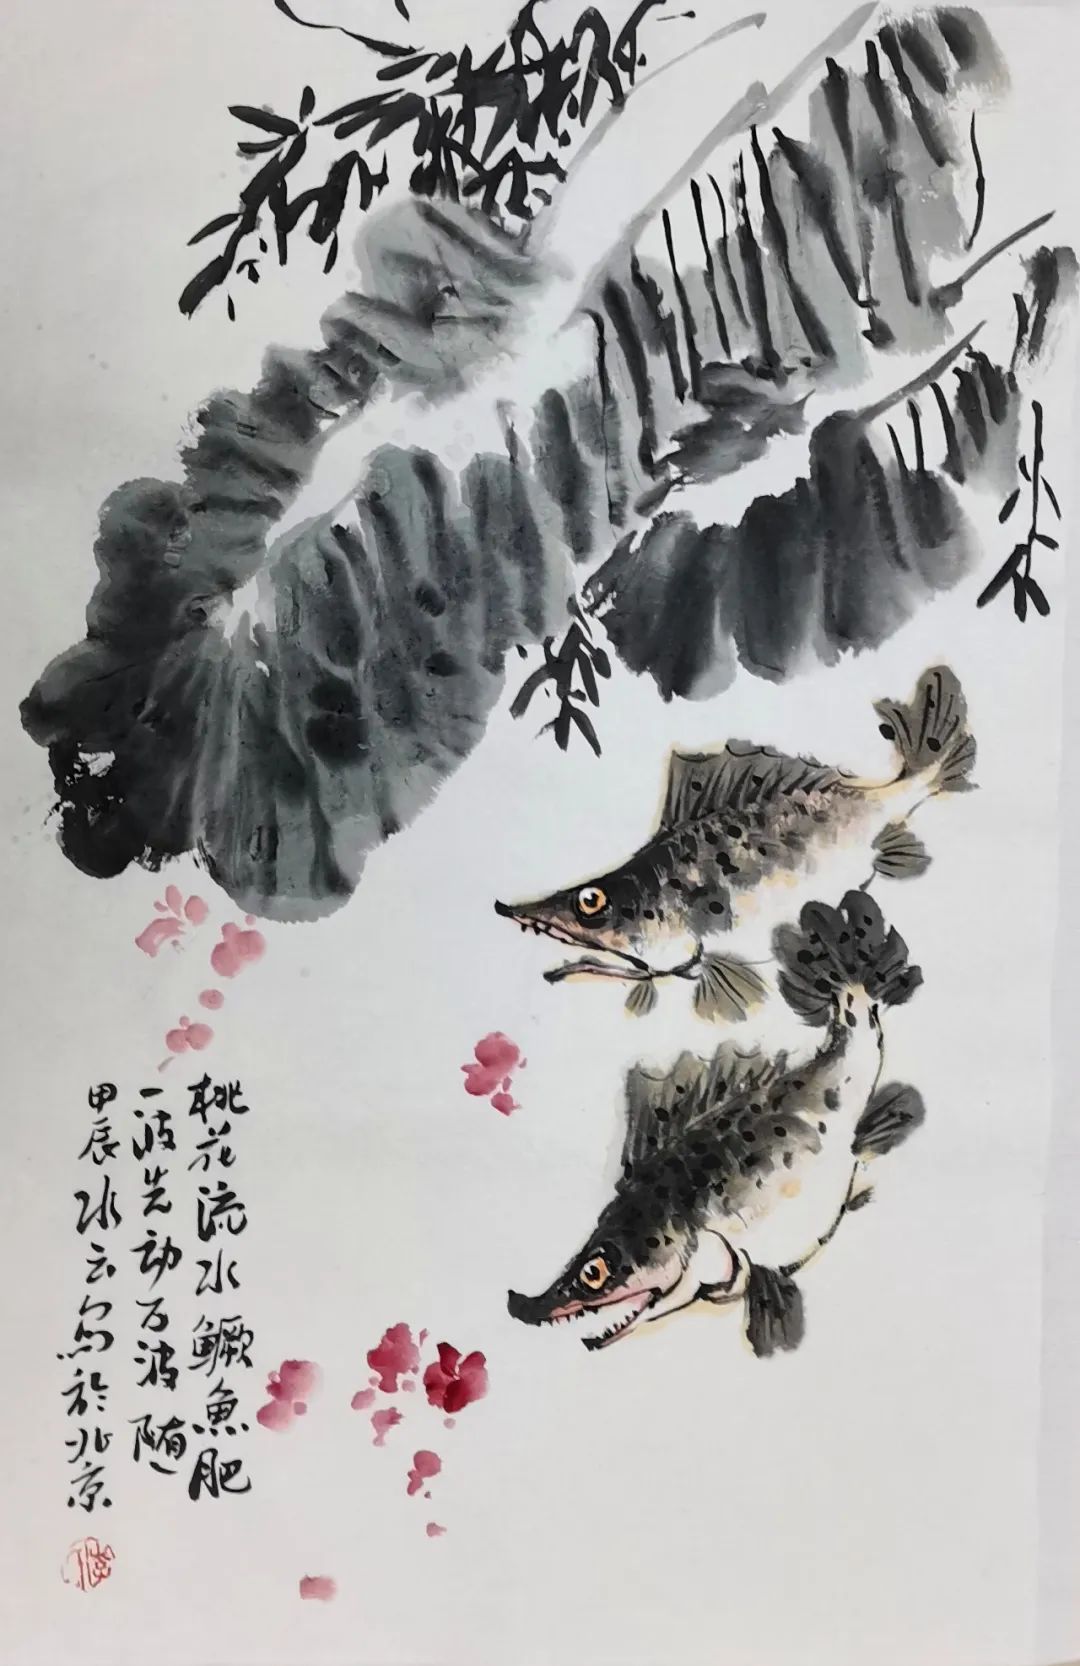 桃花流水鳜鱼肥
一波先动万波随
甲辰冰云写於北京